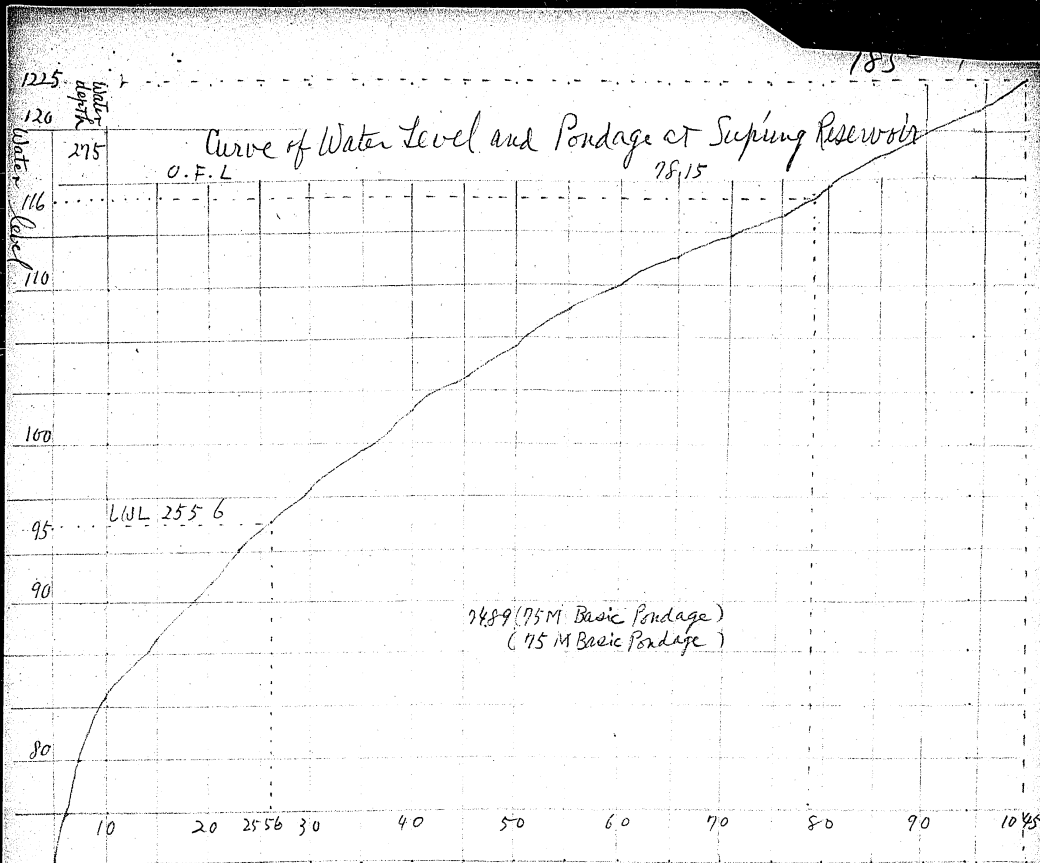 185
1225
Water depth
120
Curve of Water Level and Pondage at Supíung Reservoir
275
O.F.L
78,15
116
Water level
110
100
LWL 255 6
95
90
7489 (75M Basic Pondage)
(75 M Basic Pondage)
80
10 20 2556 30 40 50 60 70 80 90 1045